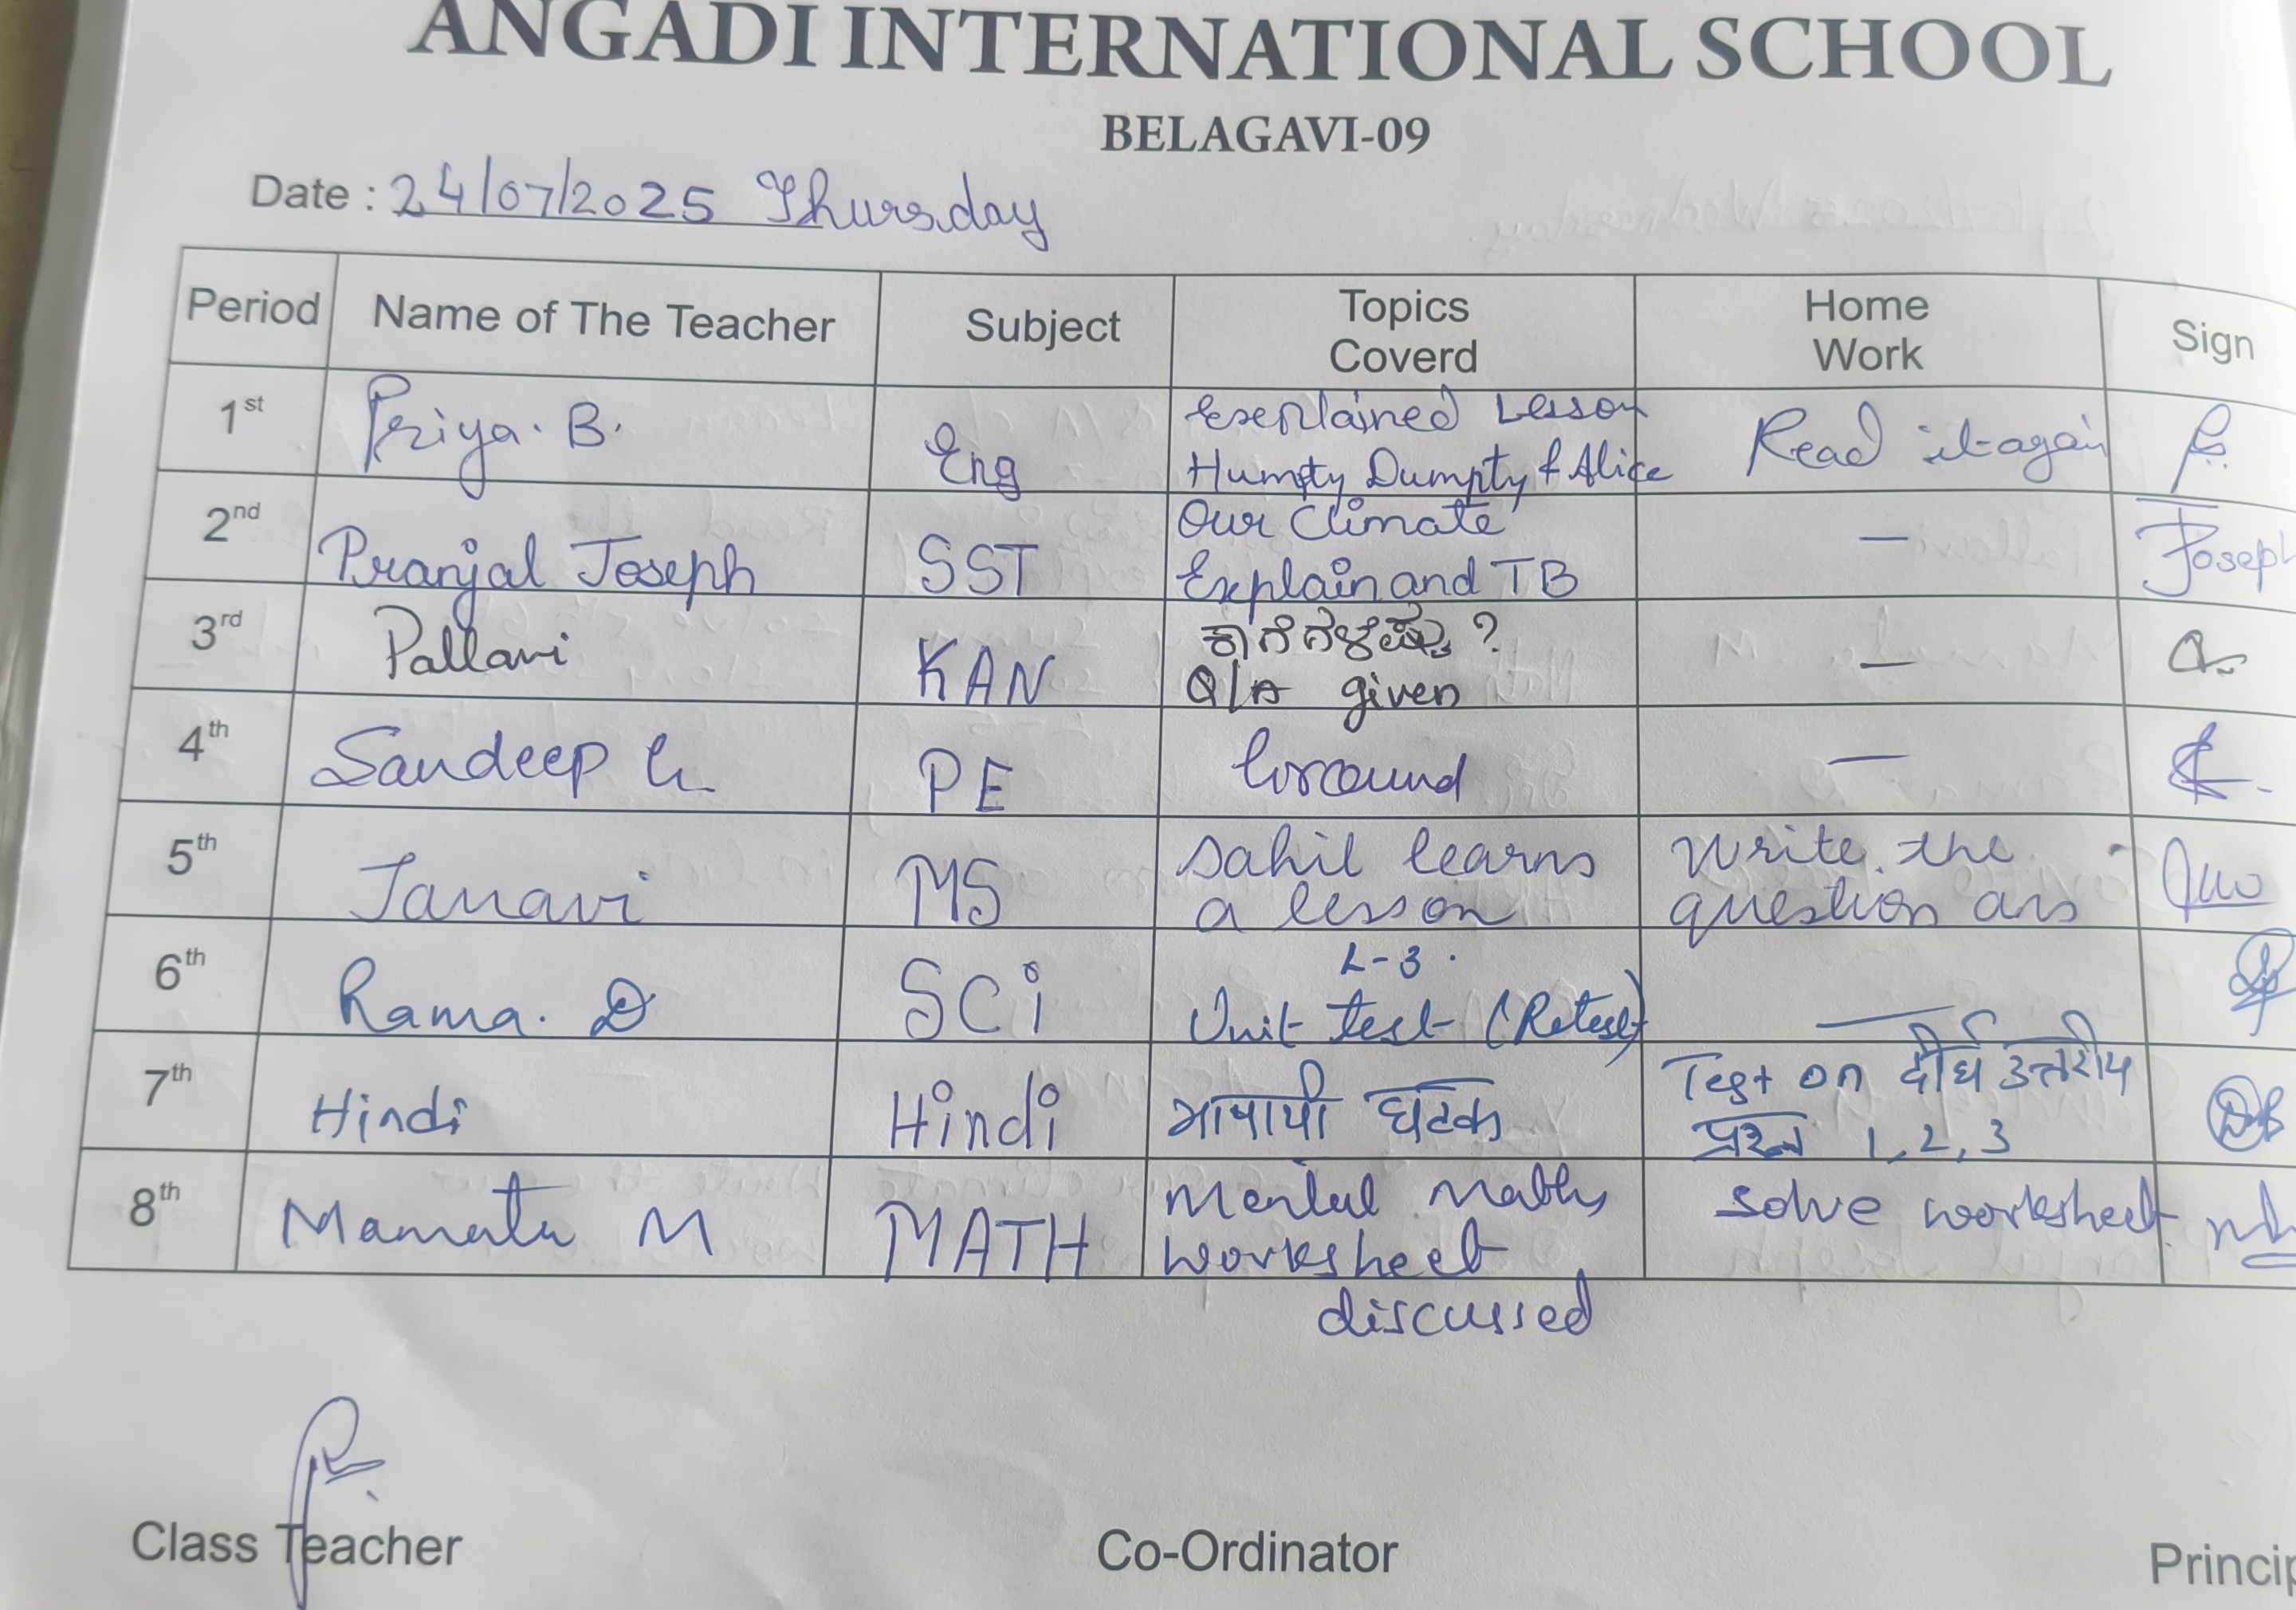 ANGADI INTERNATIONAL SCHOOL
BELAGAVI-09
Date : 24/07/2025 Thursday
Period Name of The Teacher Subject Topics Coverd Home Work Sign
1st Priya. B. Eng Explained Lesson Read it again
Humpty Dumpty & Alice
2nd Pranjal Joseph SST Our Climate — Joseph
Explain and TB
3rd Pallavi KAN ಕಾಗೆಗಳೆಷ್ಟು ? —
Q/A given
4th Sandeep G PE Ground —
5th Janavi MS Sahil learns Write the
a lesson question ans
6th Rama. D SCi L-3 .
Unit test (Retest) —
7th Hindi Hindi भाषायी घटक Test on दीर्घ उत्तरीय
प्रश्न 1, 2, 3
8th Mamata M MATH Mental maths solve worksheet
worksheet
discussed
Class Teacher Co-Ordinator